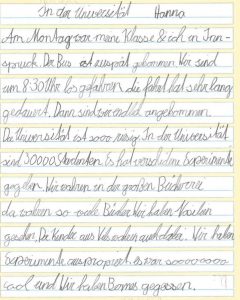 In der Universität Hanna
Am Montag war meine Klasse & ich in Inn-
spruck. Der Bus ist zu spät gekommen. Wir sind
um 8:30 Uhr los gefahren die fahrt hat sehr lang
gedauert. Dann sind wir endlich angekommen.
Die Universität ist sooo riesig. In der Universität
sind 30000 Studenten. Es hat verschidene Experimente
gegeben. Wir waren in der großen Bücherei
da waren so viele Bücher. Wir haben
gesehen. Die Kinder aus Vils waren auch dabei. Wir haben
Experimente ausprobiert. es war soooooooo
cool und Wir haben Pommes gegessen.